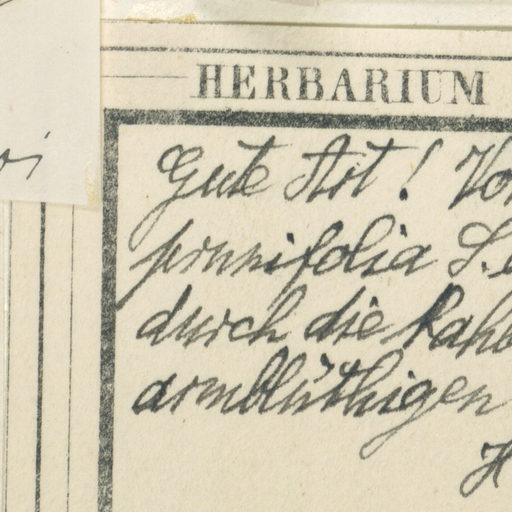 HERBARIUM
oi
Gute Art! Vo
prunifolia S.
durch die kah
armblüthigen
H